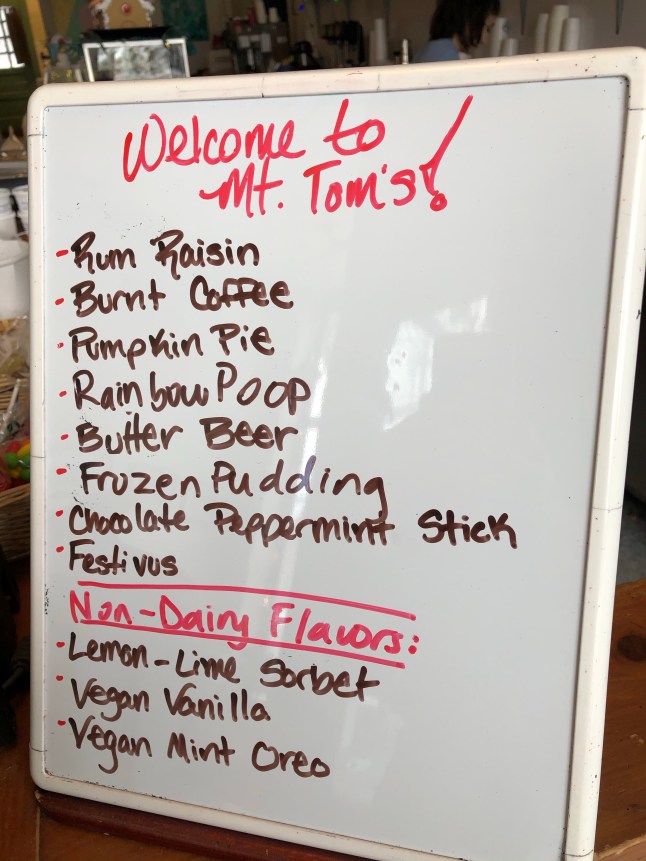 Welcome to
Mt. Tom's!
- Rum Raisin
- Burnt Coffee
- Pumpkin Pie
- Rainbow Poop
- Butter Beer
- Frozen Pudding
- Chocolate Peppermint Stick
- Festivus
Non-Dairy Flavors:
- Lemon-Lime Sorbet
- Vegan Vanilla
- Vegan Mint Oreo